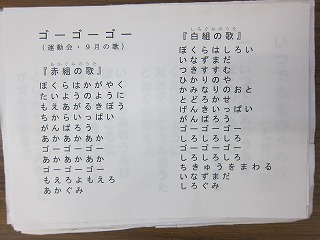 ゴーゴーゴー
(運動会・9月の歌)
あかぐみのうた
『赤組の歌』
ぼくらはかがやく
たいようのように
もえあがるきぼう
ちからいっぱい
がんばろう
あかあかあか
ゴーゴーゴー
あかあかあか
ゴーゴーゴー
もえろよもえろ
あかぐみ
しろぐみのうた
『白組の歌』
ぼくらはしろい
いなずまだ
つきすすむ
ひかりのや
かみなりのおと
とどろかせ
げんきいっぱい
がんばろう
ゴーゴーゴー
しろしろしろ
ゴーゴーゴー
しろしろしろ
ちきゅうをまわる
いなずまだ
しろぐみ